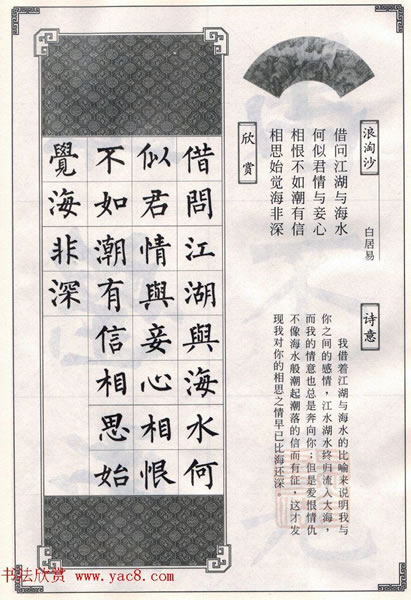 浪淘沙
白居易
借问江湖与海水
何似君情与妾心
相恨不如潮有信
相思始觉海非深
诗意
我借着江湖与海水的比喻来说明我与
你之间的感情，江水湖水终归流入大海，
而我的情意也总是奔向你；但是爱恨情仇
不像海水般潮起潮落的信而有征，这才发
现我对你的相思之情早已比海还深。
欣赏
借問江湖與海水何
似君情與妾心相恨
不如潮有信相思始
覺海非深
书法欣赏 www.yac8.com